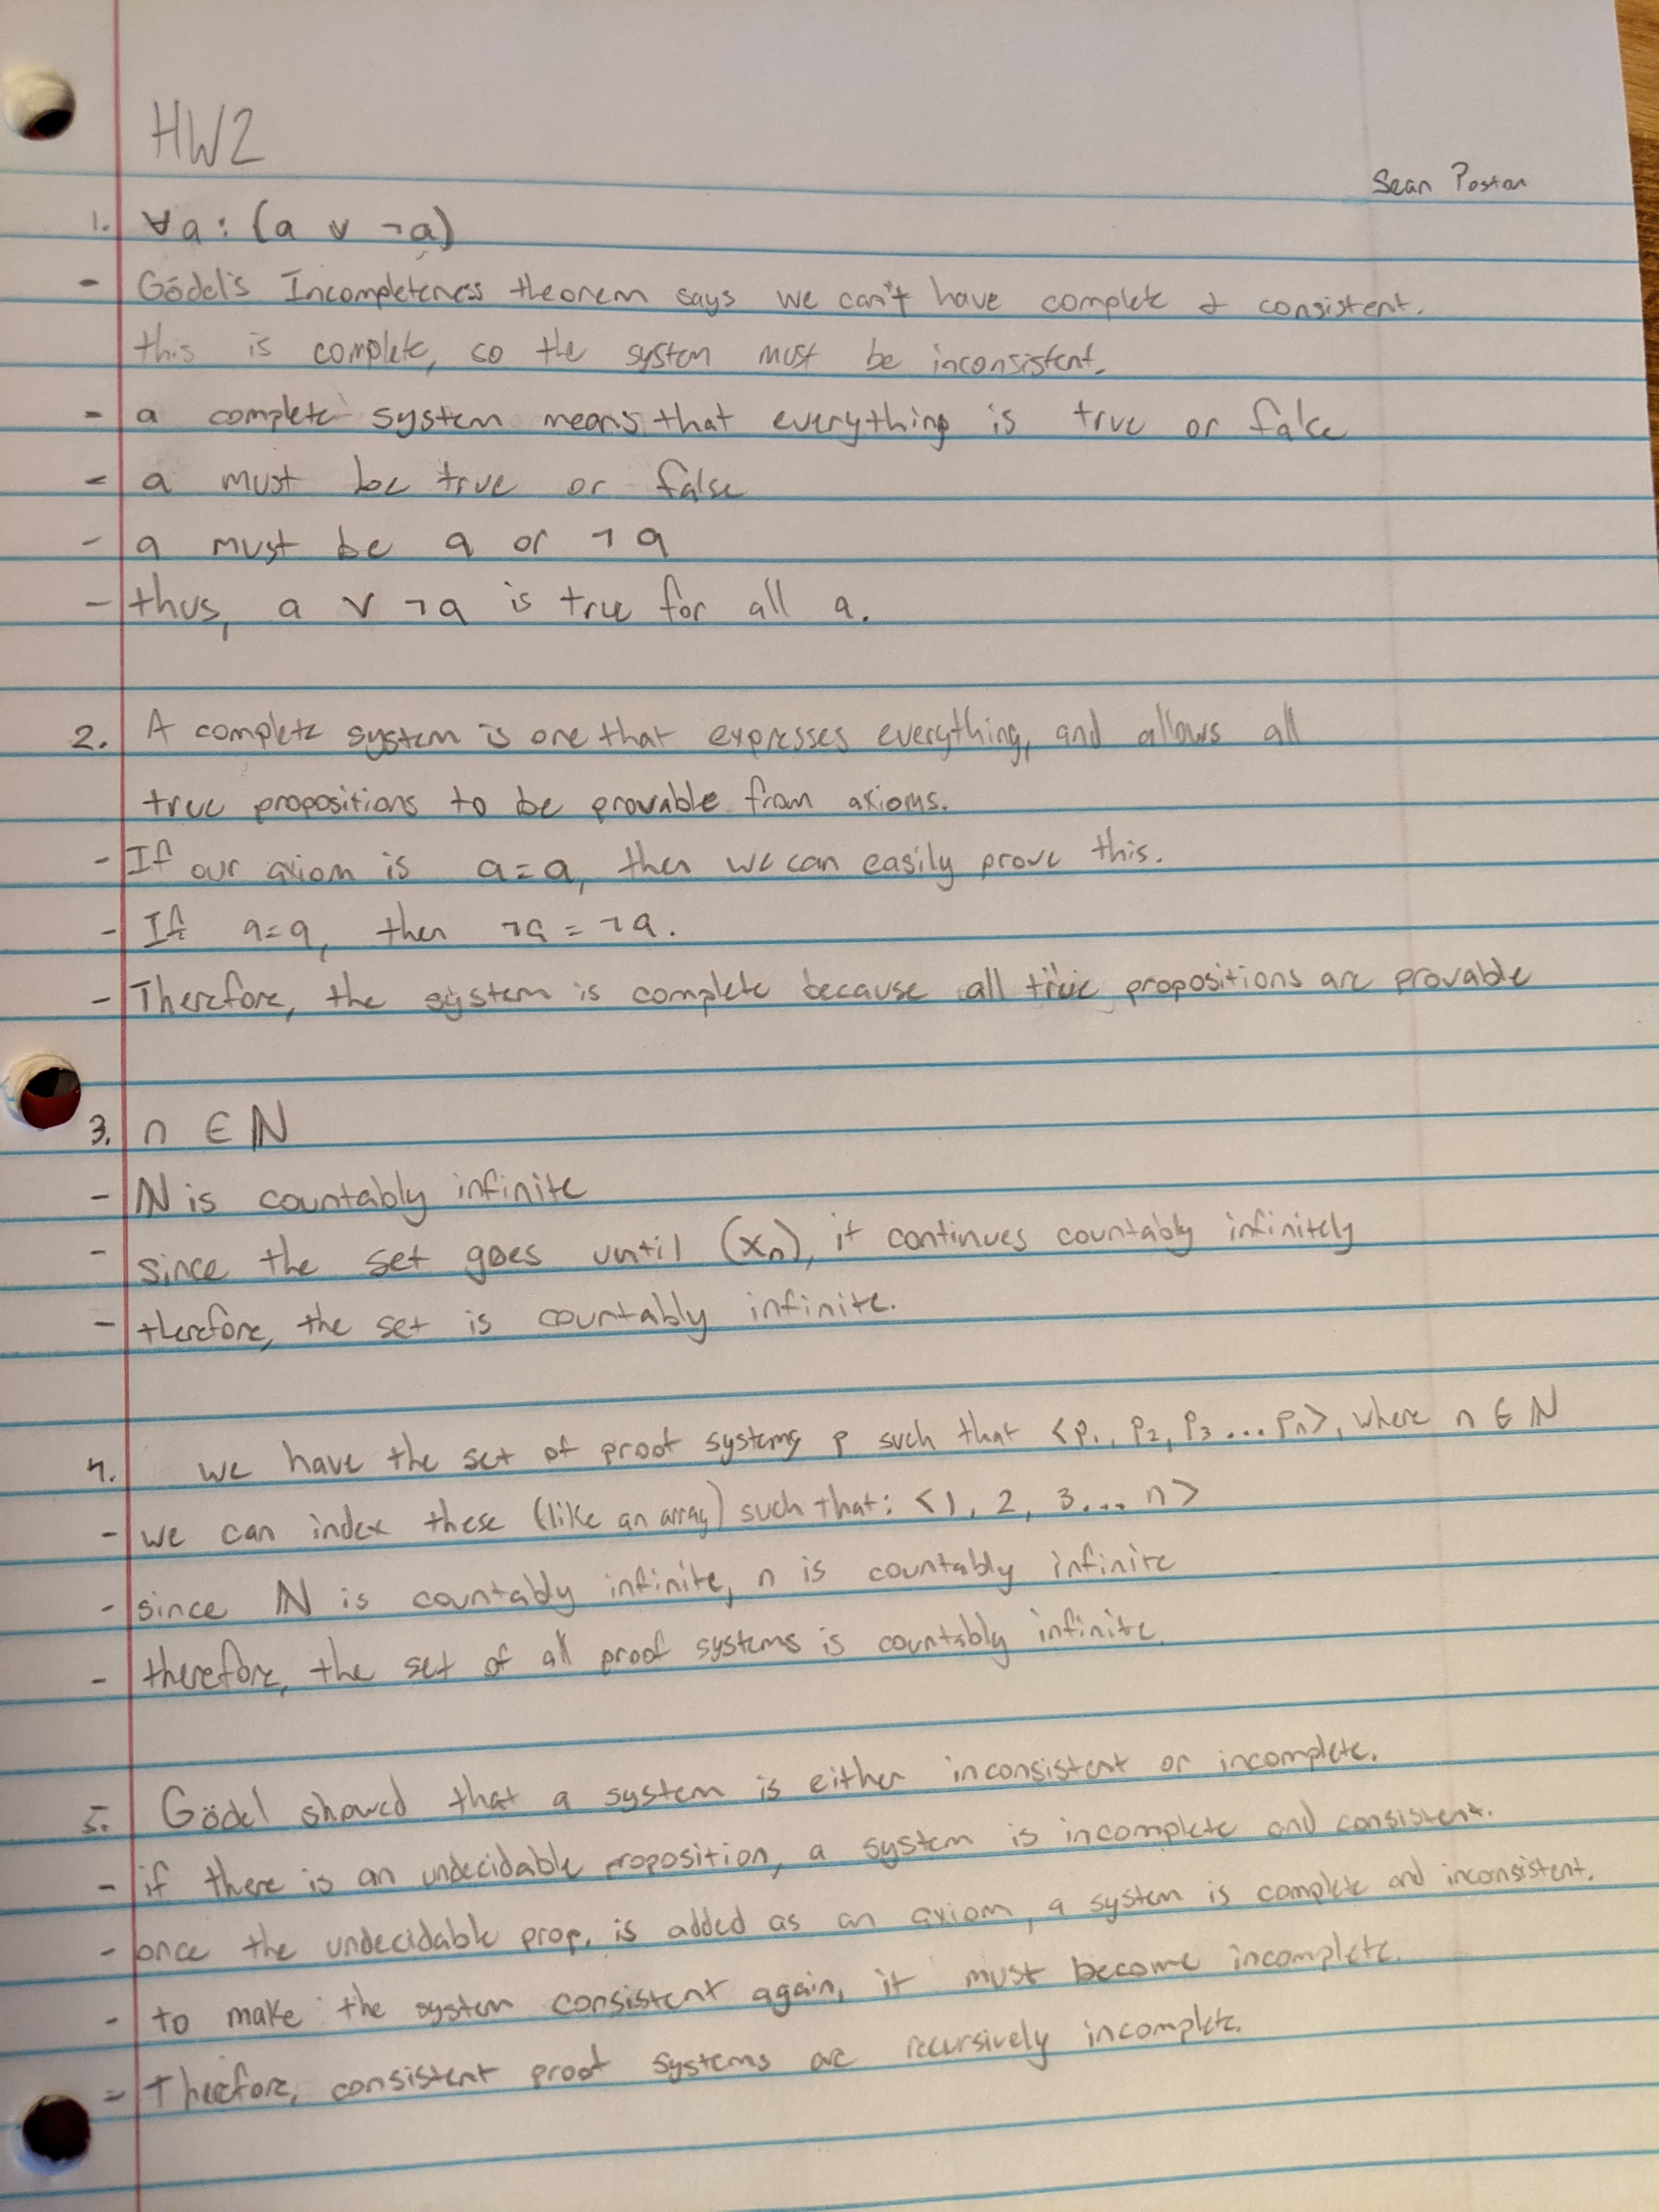 HW2
Sean Poston
1. ∀a: (a ∨ ¬a)
- Gödel's Incompleteness theorem says we can't have complete & consistent.
this is complete, so the system must be inconsistent.
- a complete system means that everything is true or false
- a must be true or false
- a must be a or ¬a
- thus, a ∨ ¬a is true for all a.
2. A complete system is one that expresses everything, and allows all
true propositions to be provable from axioms.
- If our axiom is a=a, then we can easily prove this.
- If a=a, then ¬a=¬a.
- Therefore, the system is complete because all true propositions are provable
3. n ∈ ℕ
- ℕ is countably infinite
- since the set goes until (xₙ), it continues countably infinitely
- therefore, the set is countably infinite.
4. we have the set of proof systems p such that <P₁, P₂, P₃ ... Pₙ>, where n ∈ ℕ
- we can index these (like an array) such that: <1, 2, 3... n>
- since ℕ is countably infinite, n is countably infinite
- therefore, the set of all proof systems is countably infinite.
5. Gödel showed that a system is either inconsistent or incomplete.
- if there is an undecidable proposition, a system is incomplete and consistent.
- once the undecidable prop. is added as an axiom, a system is complete and inconsistent.
- to make the system consistent again, it must become incomplete.
- Therefore, consistent proof systems are recursively incomplete.